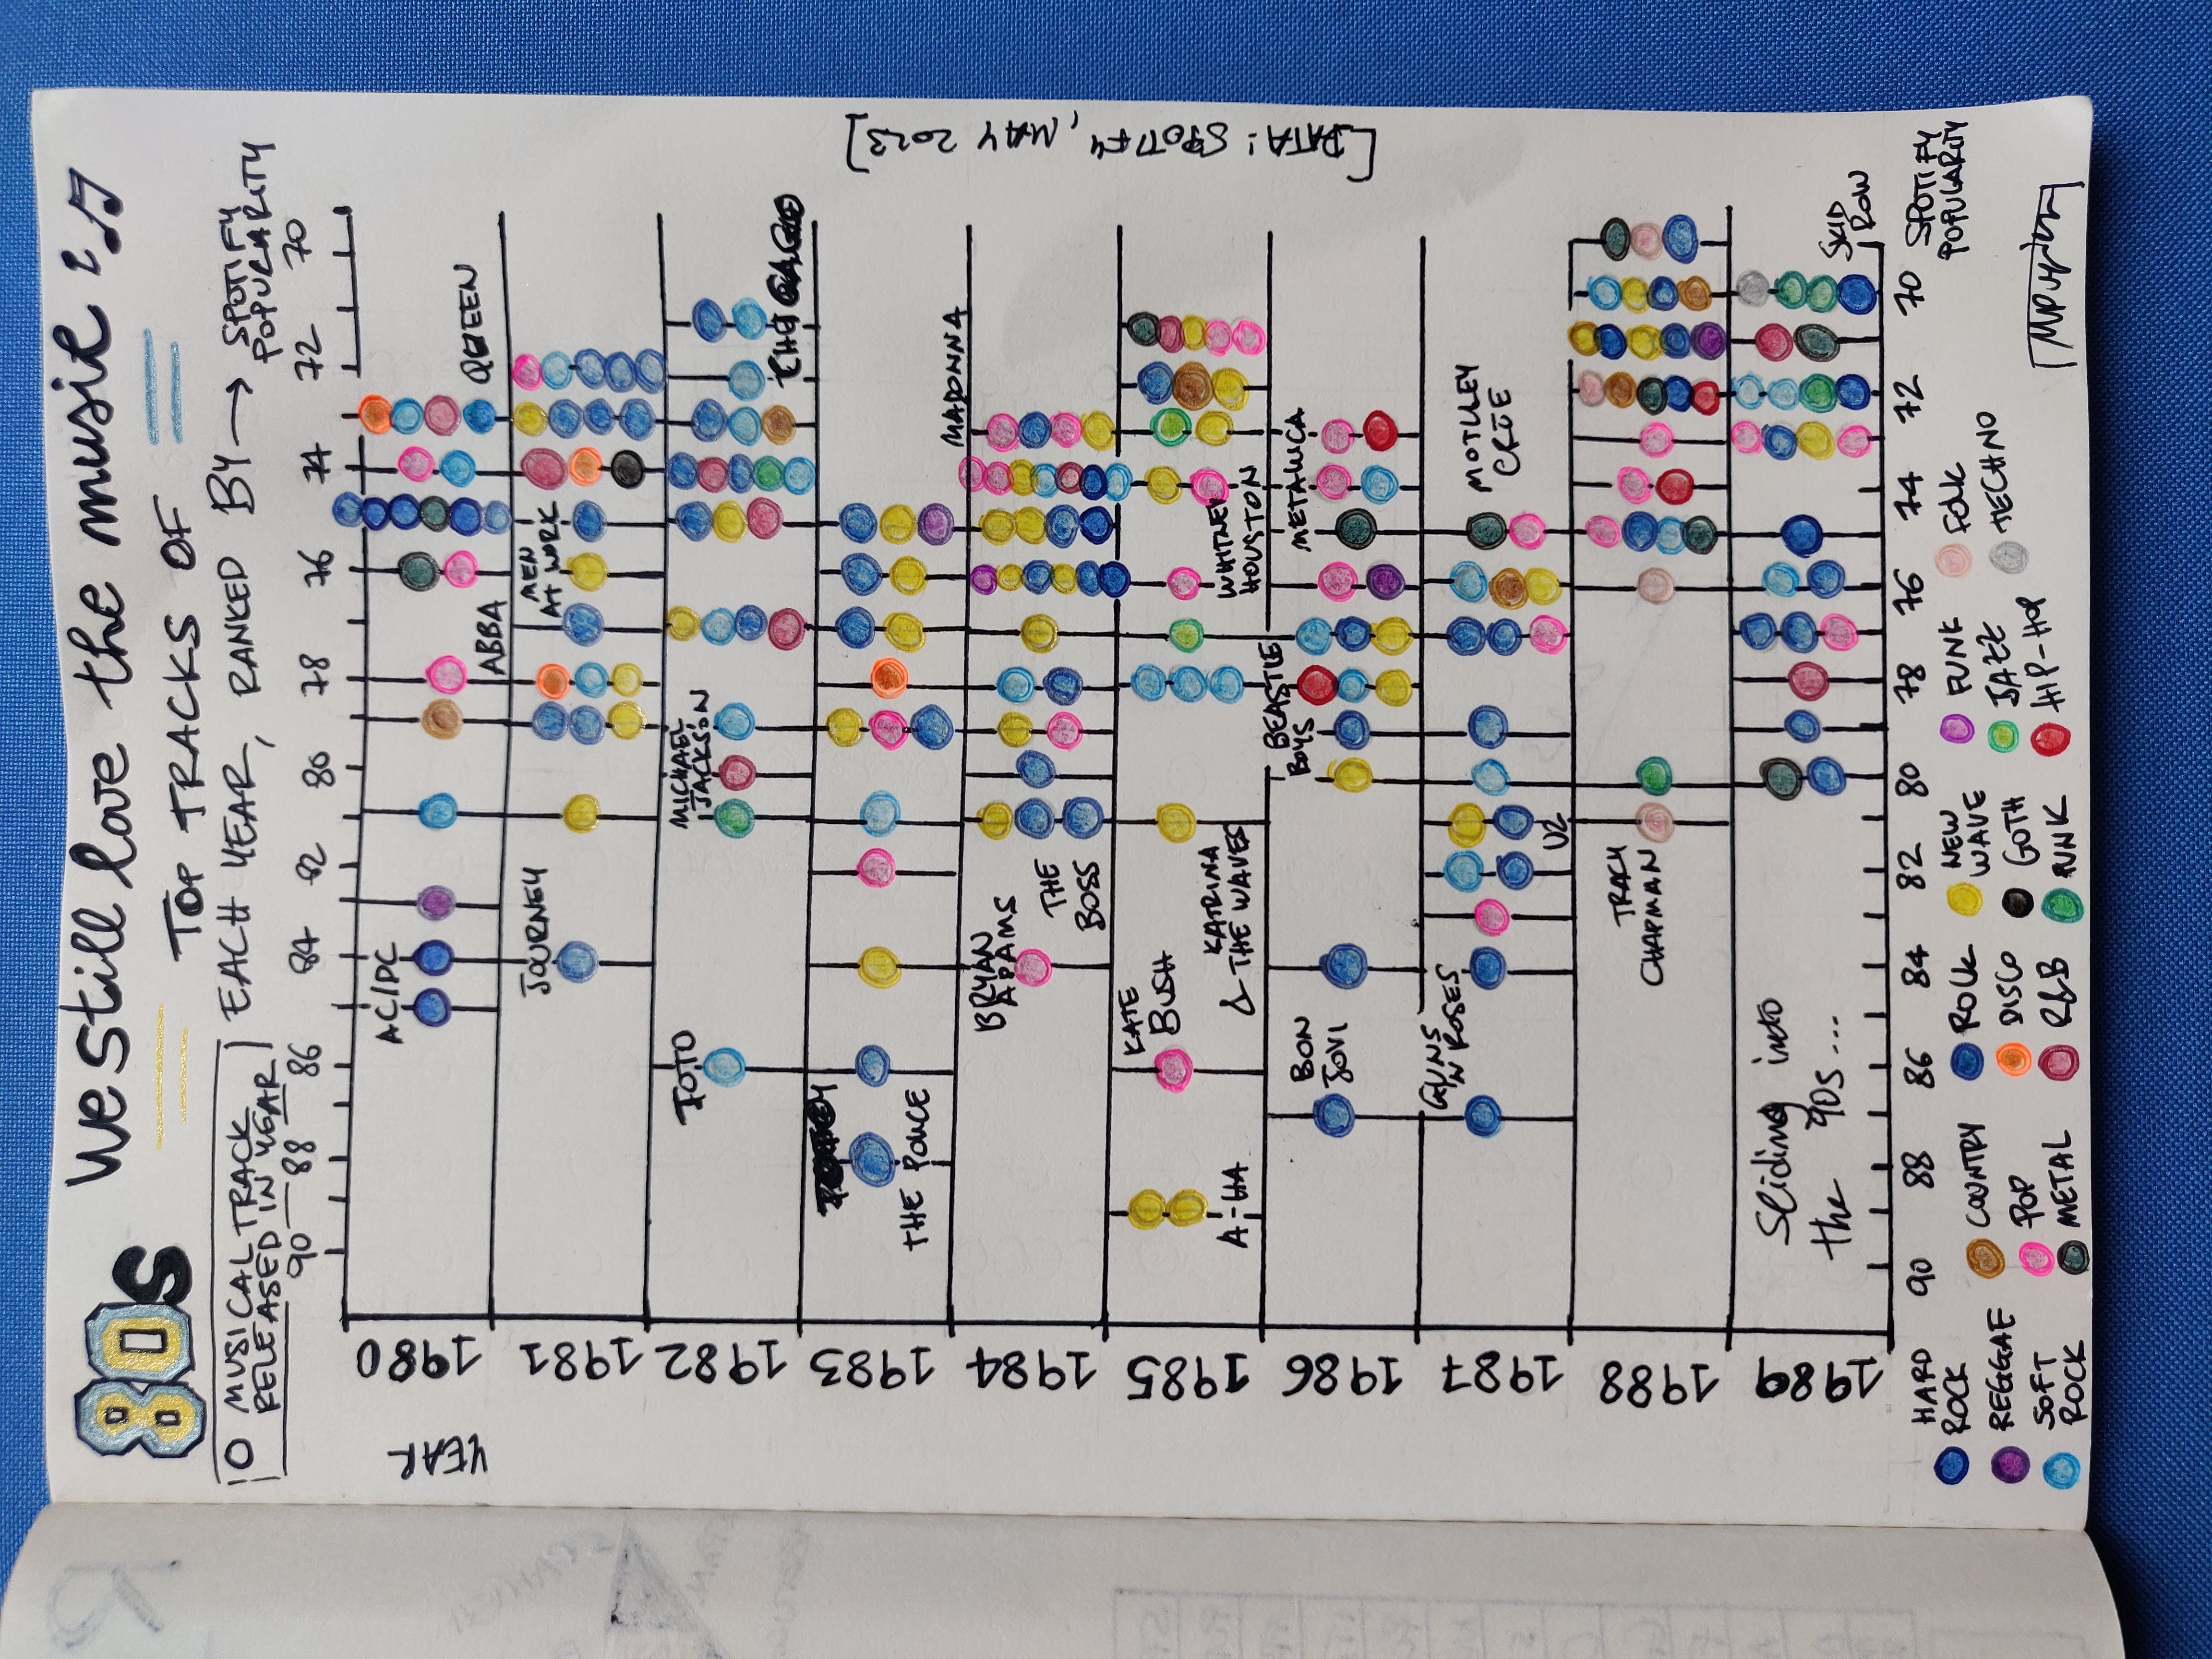 80s
We still love the music
TOP TRACKS OF
EACH YEAR, RANKED BY → SPOTIFY
POPULARITY
O MUSICAL TRACK
RELEASED IN YEAR
90 88 86 84 82 80 78 76 74 72 70
YEAR
1980
AC/DC
ABBA
QUEEN
1981
JOURNEY
MEN
AT WORK
1982
TOTO
MICHAEL
JACKSON
CHICAGO
1983
THE POLICE
1984
BRYAN
ADAMS
THE
BOSS
MADONNA
1985
A-HA
KATE
BUSH
KATRINA
& THE WAVES
WHITNEY
HOUSTON
1986
BON
JOVI
BEASTIE
BOYS
METALLICA
1987
GUNS
'N ROSES
U2
MOTLLEY
CRÜE
1988
TRACY
CHAPMAN
1989
Sliding into
the 90s...
SKID
ROW
90 88 86 84 82 80 78 76 74 72 70 SPOTIFY
POPULARITY
[DATA: SPOTIFY, MAY 2023]
HARD
ROCK
REGGAE
SOFT
ROCK
COUNTRY
POP
METAL
ROCK
DISCO
R&B
NEW
WAVE
GOTH
PUNK
FUNK
JAZZ
HIP-HOP
FOLK
TECHNO